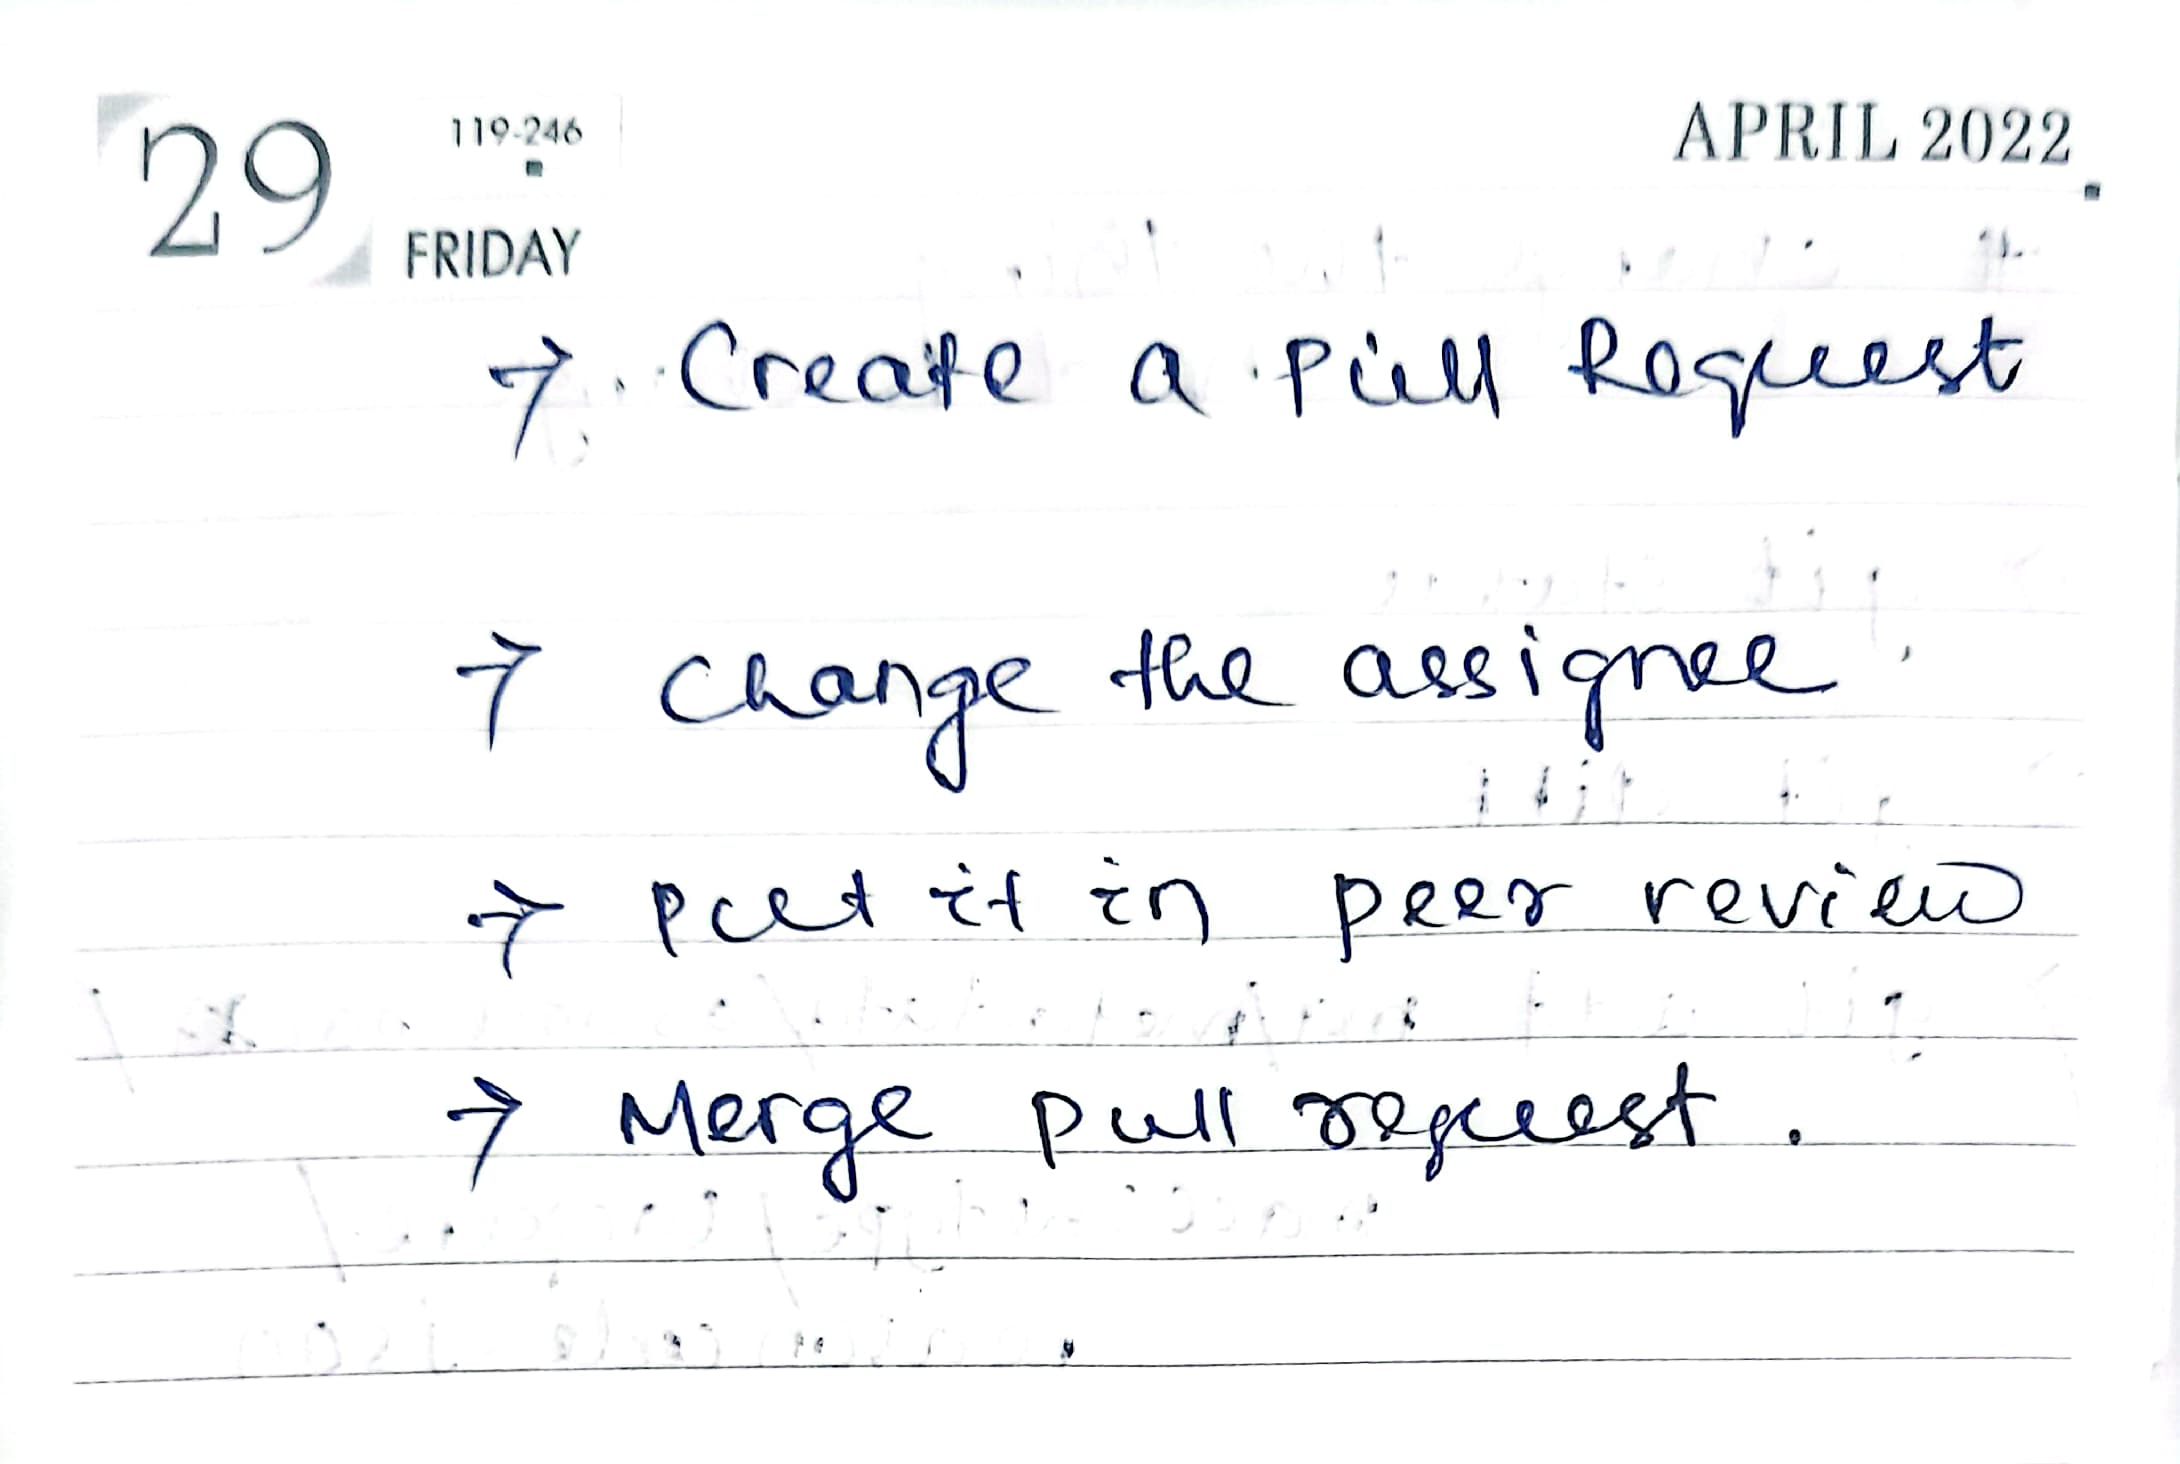 29 119-246 APRIL 2022
FRIDAY
→ Create a Pull Request
→ change the assignee
→ put it in peer review
→ Merge pull request.